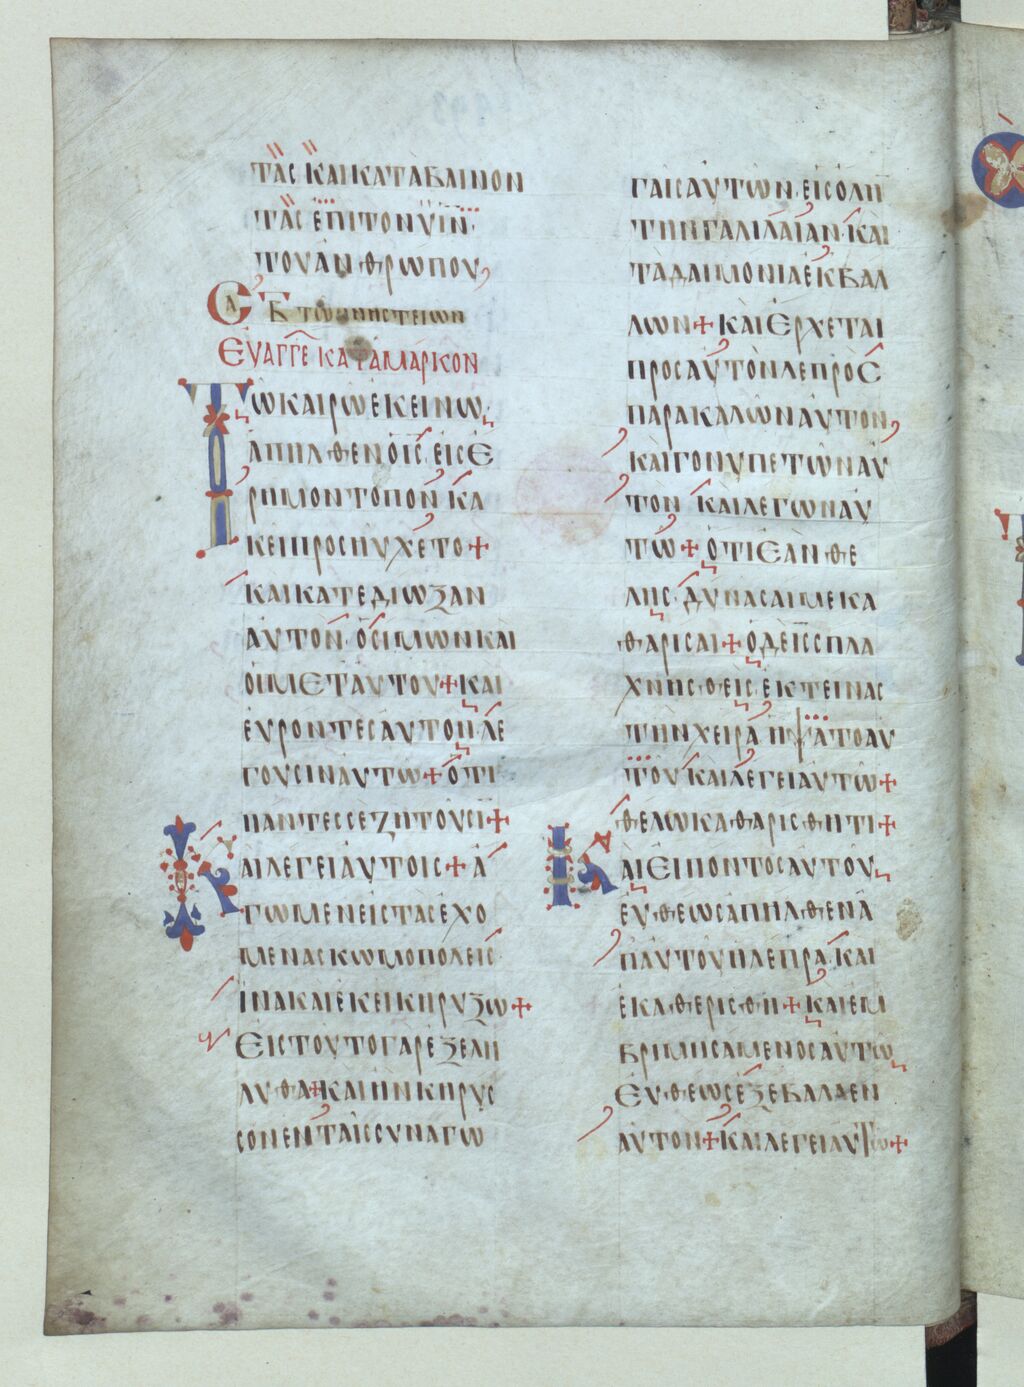 ΤΑΣ ΚΑΙ ΚΑΤΑΒΑΙΝΟΝ
ΤΑΣ ΕΠΙ ΤΟΝ ΥΙΝ
ΤΟΥ ΑΝΘΡΩΠΟΥ
ΣΑ Β ΤΩΝ ΝΗΣΤΕΙΩΝ
ΕΥΑΓΓΕ ΚΑΤΑ ΜΑΡΚΟΝ
ΤΩ ΚΑΙΡΩ ΕΚΕΙΝΩ
ΑΠΗΛΘΕΝ Ο ΙΣ ΕΙΣ Ε
ΡΗΜΟΝ ΤΟΠΟΝ ΚΑ
ΚΕΙ ΠΡΟΣΗΥΧΕΤΟ+
ΚΑΙ ΚΑΤΕΔΙΩΞΑΝ
ΑΥΤΟΝ Ο ΣΙΜΩΝ ΚΑΙ
ΟΙ ΜΕΤ ΑΥΤΟΥ+ΚΑΙ
ΕΥΡΟΝΤΕΣ ΑΥΤΟΝ ΛΕ
ΓΟΥΣΙΝ ΑΥΤΩ+ΟΤΙ
ΠΑΝΤΕΣ ΣΕ ΖΗΤΟΥΣΙ+
ΚΑΙ ΛΕΓΕΙ ΑΥΤΟΙΣ+Α
ΓΩΜΕΝ ΕΙΣ ΤΑΣ ΕΧΟ
ΜΕΝΑΣ ΚΩΜΟΠΟΛΕΙΣ
ΙΝΑ ΚΑΙ ΕΚΕΙ ΚΗΡΥΞΩ+
ΕΙΣ ΤΟΥΤΟ ΓΑΡ ΕΞΕΛΗ
ΛΥΘΑ+ΚΑΙ ΗΝ ΚΗΡΥΣ
ΣΟΝ ΕΝ ΤΑΙΣ ΣΥΝΑΓΩ
ΓΑΙΣ ΑΥΤΩΝ ΕΙΣ ΟΛΗ
ΤΗΝ ΓΑΛΙΛΑΙΑΝ ΚΑΙ
ΤΑ ΔΑΙΜΟΝΙΑ ΕΚΒΑΛ
ΛΩΝ+ΚΑΙ ΕΡΧΕΤΑΙ
ΠΡΟΣ ΑΥΤΟΝ ΛΕΠΡΟΣ
ΠΑΡΑΚΑΛΩΝ ΑΥΤΟΝ
ΚΑΙ ΓΟΝΥΠΕΤΩΝ ΑΥ
ΤΟΝ ΚΑΙ ΛΕΓΩΝ ΑΥ
ΤΩ+ΟΤΙ ΕΑΝ ΘΕ
ΛΗΣ ΔΥΝΑΣΑΙ ΜΕ ΚΑ
ΘΑΡΙΣΑΙ+Ο ΔΕ ΙΣ ΣΠΛΑ
ΧΝΗΣΘΕΙΣ ΕΚΤΕΙΝΑΣ
ΤΗΝ ΧΕΙΡΑ ΗΨΑΤΟ ΑΥ
ΤΟΥ ΚΑΙ ΛΕΓΕΙ ΑΥΤΩ+
ΘΕΛΩ ΚΑΘΑΡΙΣΘΗΤΙ+
ΚΑΙ ΕΙΠΟΝΤΟΣ ΑΥΤΟΥ
ΕΥΘΕΩΣ ΑΠΗΛΘΕΝ Α
Π ΑΥΤΟΥ Η ΛΕΠΡΑ ΚΑΙ
ΕΚΑΘΕΡΙΣΘΗ+ΚΑΙ ΕΜ
ΒΡΙΜΗΣΑΜΕΝΟΣ ΑΥΤΩ
ΕΥΘΕΩΣ ΕΞΕΒΑΛΛΕΝ
ΑΥΤΟΝ+ΚΑΙ ΛΕΓΕΙ ΑΥΤΩ+